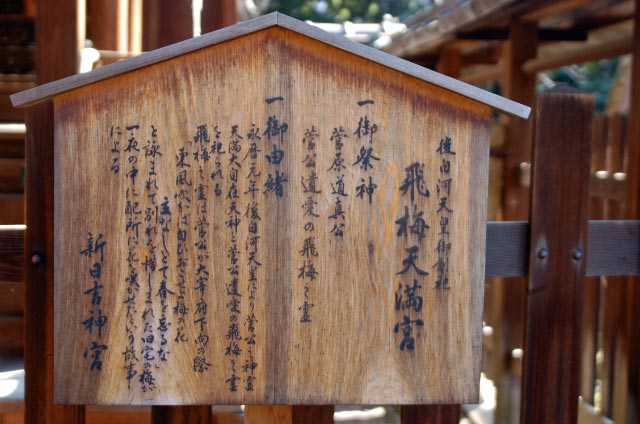 後白河天皇御創祀
飛梅天満宮
一御祭神
菅原道真公
菅公遺愛の飛梅之霊
一御由緒
永暦元年後白河天皇により菅公之神霊
天満大自在天神と菅公遺愛の飛梅之霊
を祀られる
飛梅之霊は菅公が大宰府下向の際
東風吹かば匂ひおこせよ梅の花
主なしとて春を忘るな
と詠まれて別れを惜しまれた旧宅の梅が
一夜の中に配所に花を咲せたという故事
による
新日吉神宮